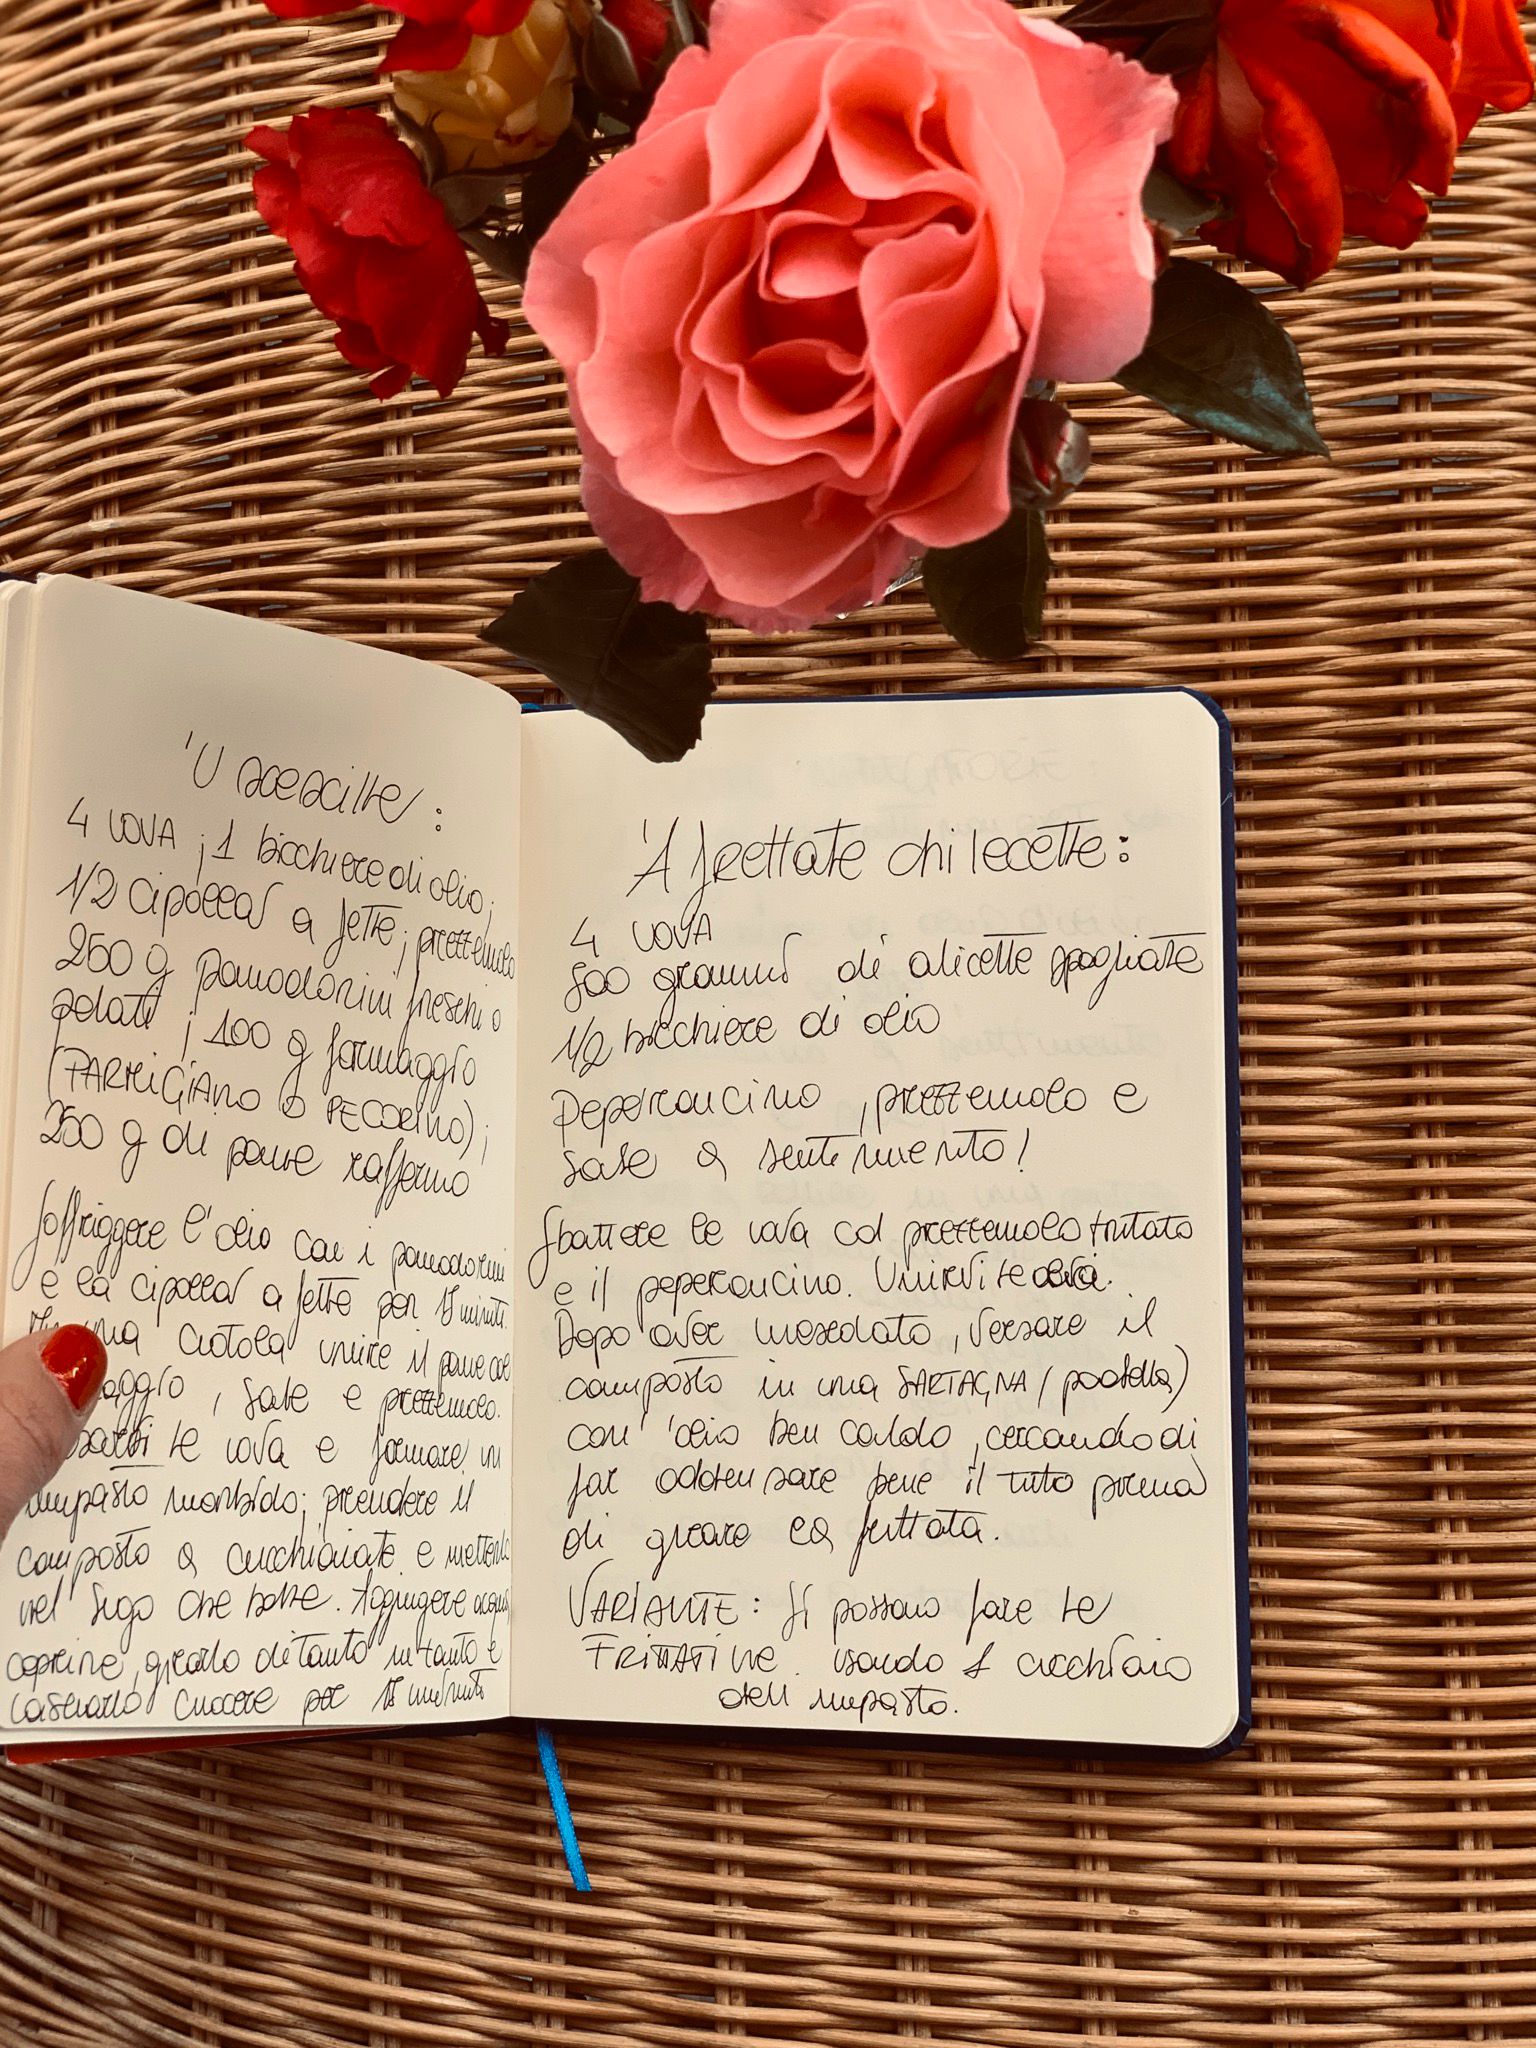 'U scescille :
4 UOVA ; 1 bicchiere di olio ;
1/2 cipolla a fette ; prezzemolo
250 g pomodorini freschi o
pelati ; 100 g formaggio
(PARMIGIANO O PECORINO) ;
250 g di pane raffermo
Soffriggere l'olio con i pomodorini
e la cipolla a fette per 15 minuti.
una ciotola unire il pane col
aggio , sale e prezzemolo.
le uova e formare un
impasto morbido; prendere il
composto a cucchiaiate e metterlo
nel sugo che bolle. Aggiungere acqua
coprire, girarlo di tanto in tanto e
lasciarlo cuocere per 15 minuti
'A frettate chi lecette :
4 UOVA
500 grammi di alicette spogliate
1/2 bicchiere di olio
Peperoncino , prezzemolo e
sale a sentimento!
Sbattere le uova col prezzemolo tritato
e il peperoncino. Unirvi le alici.
Dopo aver mescolato , versare il
composto in una SARTAGNA / padella)
con l'olio ben caldo , cercando di
far addensare bene il tutto prima
di girare la frittata.
VARIANTE : Si possono fare le
FRITTATINE usando 1 cucchiaio
dell impasto.